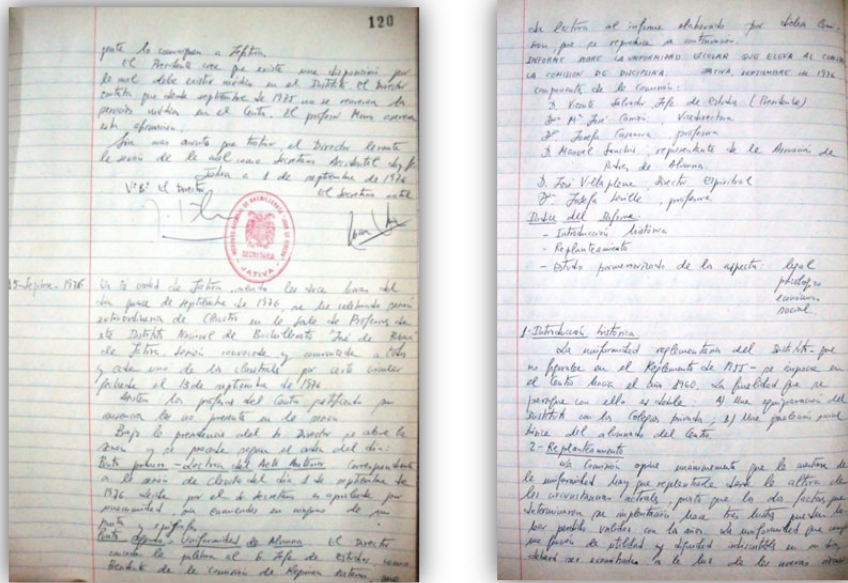 120
gente lo comunique a Jefatura.
El Presidente cree que existe una disposición por
la cual debe existir médico en el Instituto. El Director
contesta que desde septiembre de 1975 no se renueva los
servicios médicos en el Centro. El profesor
esta afirmación.
Sin mas asuntos que tratar, el Director levanta
la sesión de la cual como Secretario Accidental doy fe.
Játiva a 1 de septiembre de 1976
Vº Bº el Director
El Secretario
INSTITUTO NACIONAL DE BACHILLERATO "JOSE DE RIBERA"
SECRETARIA
JATIVA
15-Septbre-1976
En la ciudad de Játiva, siendo las doce horas del
día quince de septiembre de 1976, se ha celebrado sesión
extraordinaria de Claustro en la Sala de Profesores de
este Instituto Nacional de Bachillerato "José de Ribera"
de Játiva. Sesión convocada y comunicada a todos
y cada uno de los claustrales por carta circular
fechada el 13 de septiembre de 1976
Asisten los profesores del Centro justificando su
ausencia los no presentes en la sesión
Bajo la presidencia del Sr. Director se abre la
sesión y se procede según el orden del día:
Punto primero - Lectura del Acta Anterior. Correspondiente
a la sesión de Claustro del día 1 de septiembre de
1976. Leída por el Sr. Secretario es aprobada por
unanimidad, sin enmiendas en ninguno de sus
puntos y apartados
Punto segundo - Uniformidad de Alumnos. El Director
concede la palabra al Sr. Jefe de Estudios, como
Presidente de la Comisión de Régimen interno,
da lectura al informe elaborado por dicha Comi-
sion, que se reproduce a continuación.
INFORME SOBRE LA UNIFORMIDAD ESCOLAR QUE ELEVA AL
LA COMISION DE DISCIPLINA. JATIVA, SEPTIEMBRE de 1976
Componentes de la Comisión:
D. Vicente Salvador, Jefe de Estudios (Presidente)
Dª Mª José, Vicedirectora
Dª Josefa Casanova, profesora
D. Manuel Sanchis, representante de la Asociación de
Padres de Alumnos.
D. José Villaplana, Director Espiritual
Dª Josefa Sevilla, profesora
Indice del Informe
- Introducción histórica
- Replanteamiento
- Estudio pormenorizado de los aspectos: legal
psicológico
económico
social
1-Introducción histórica
La uniformidad reglamentaria del Instituto - que
no figuraba en el Reglamento de 1955 - se impuso en
el Centro hacia el año 1960. La finalidad que se
persigue con ello es doble: A) Una equiparación del
Instituto con los Colegios privados, B) Una
del alumnado del Centro.
2- Replanteamiento
La Comisión opina unánimemente que la cuestión de
la uniformidad hay que replantearla desde la altura de
las circunstancias actuales, puesto que los dos factores que
determinaron su implantación hace tres lustros pueden
ser válidos con los años. La uniformidad que cumplió
una función de utilidad y dignidad indiscutibles en su día,
deberá ser a la luz de las nuevas